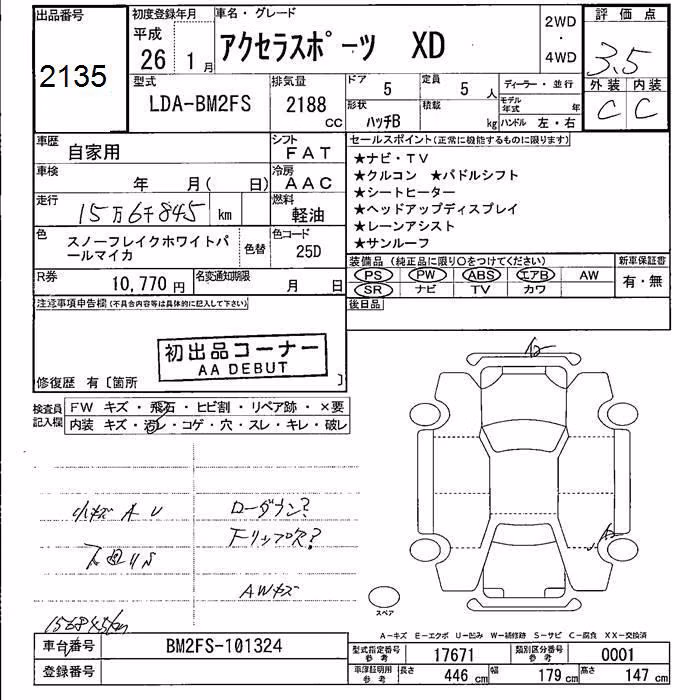 出品番号
2135
初度登録年月
平成
26 1月
車名・グレード
アクセラスポーツ XD
2WD
・
4WD
評価点
3.5
外装 内装
C C
型式
LDA-BM2FS
排気量
2188
CC
ドア
5
定員
5 人
形状
ハッチB
積載
kg
ディーラー・並行
モデル年式 年
ハンドル 左・右
車歴
自家用
シフト
FAT
車検
年 月( 日)
冷房
AAC
走行
15万6千845 km
燃料
軽油
色
スノーフレイクホワイトパールマイカ
色替
色コード
25D
R券
10,770 円
名変通知期限
月 日
セールスポイント(正常に機能するものに限ります)
★ナビ・TV
★クルコン ★パドルシフト
★シートヒーター
★ヘッドアップディスプレイ
★レーンアシスト
★サンルーフ
装備品 (純正品に限り○をつけてください)
PS PW ABS エアB AW
SR ナビ TV カワ
新車保証書
有・無
後日品
注意事項申告欄(不具合内容等は具体的に記入して下さい)
初出品コーナー
AA DEBUT
修復歴 有〔箇所 〕
検査員記入欄
FW キズ・飛石・ヒビ割・リペア跡・×要
内装 キズ・汚レ・コゲ・穴・スレ・キレ・破レ
小キズ A U
ローダウン?
下リップ欠?
AWキズ
156845km
スペア
A-キズ E-エクボ U-凹み W-補修跡 S-サビ C-腐食 XX-交換済
車台番号
BM2FS-101324
登録番号
型式指定番号
参考
17671
類別区分番号
参考
0001
車庫証明用
参考
長さ 446 cm 幅 179 cm 高さ 147 cm